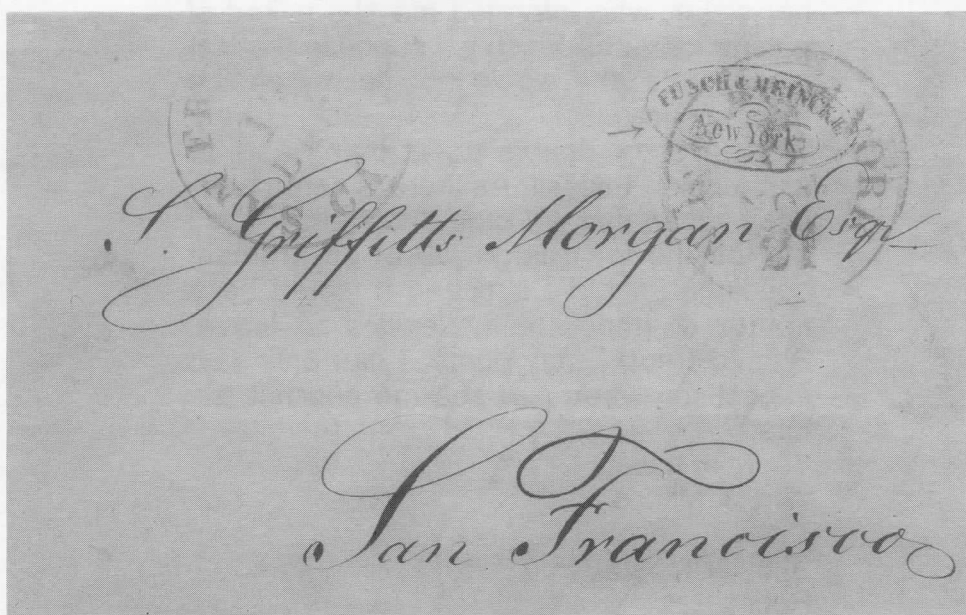 FUNCH & MEINCKE
New York
YORK
21
S. Griffitts Morgan Esqr
San Francisco